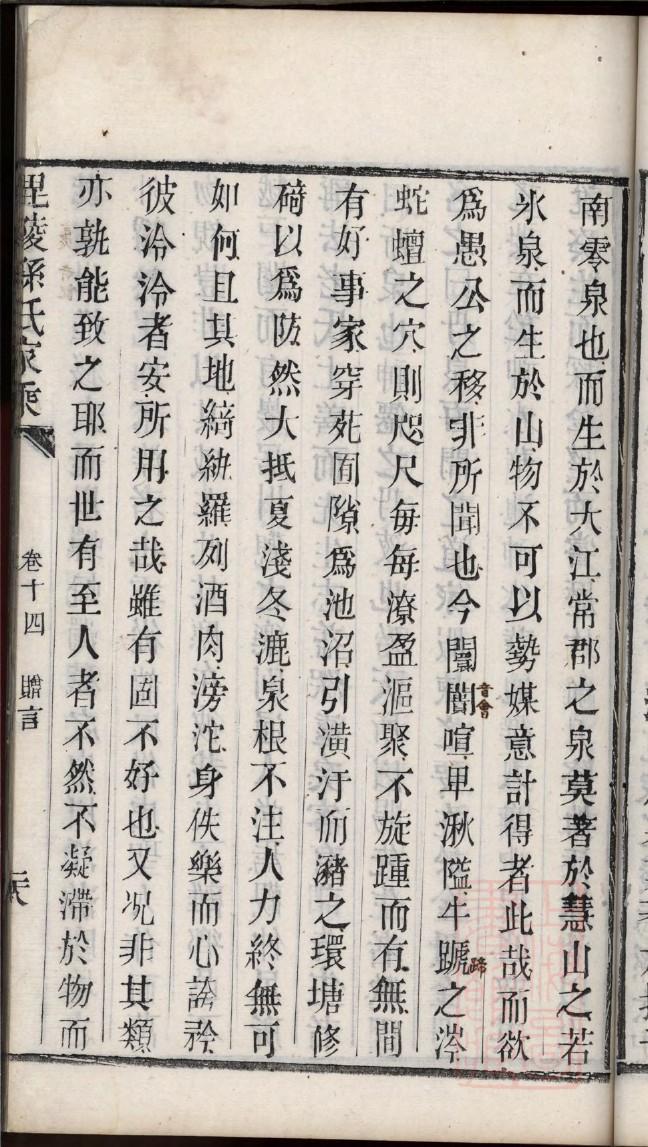 南零泉也而生於大江常郡之泉莫著於慧山之若
氷泉而生於山物不可以勢媒意計得者此哉而欲
爲愚公之移非所聞也今闤闠喧卑湫隘牛蹏之涔
音會
蹄
蛇蟺之穴則咫尺每每潦盈漚聚不旋踵而有無間
有好事家穿苑囿隙爲池沼引潢汙而豬之環塘修
碕以爲防然大抵夏淺冬漉泉根不注人力終無可
如何且其地綺紈羅列酒肉滂沱身佚樂而心誇矜
彼泠泠者安所用之哉雖有固不好也又况非其類
亦孰能致之耶而世有至人者不然不凝滯於物而
毘陵孫氏家乘
卷十四
贈言